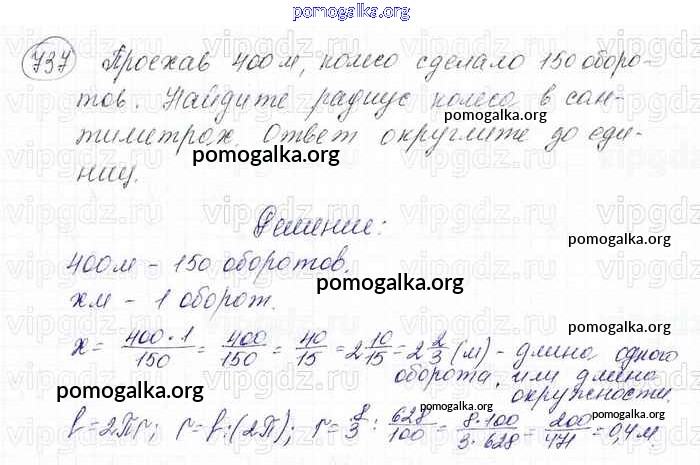 pomogalka.org
737 Проехав 400 м, колесо сделало 150 оборо-
тов. Найдите радиус колеса в сан-
тиметрах. Ответ округлите до еди-
pomogalka.org
ниц.
Решение:
400 м – 150 оборотов.
pomogalka.org
х м – 1 оборот.
pomogalka.org
x = 400·1/150 = 400/150 = 40/15 = 2 10/15 = 2 2/3 (м) - длина одного
pomogalka.org
оборота, или длина
окружности.
pomogalka.org
pomogalka.org
ℓ = 2πr; r = ℓ:(2π); r = 8/3 : 628/100 = 8·100/3·628 = 200/471 = 0,4 м